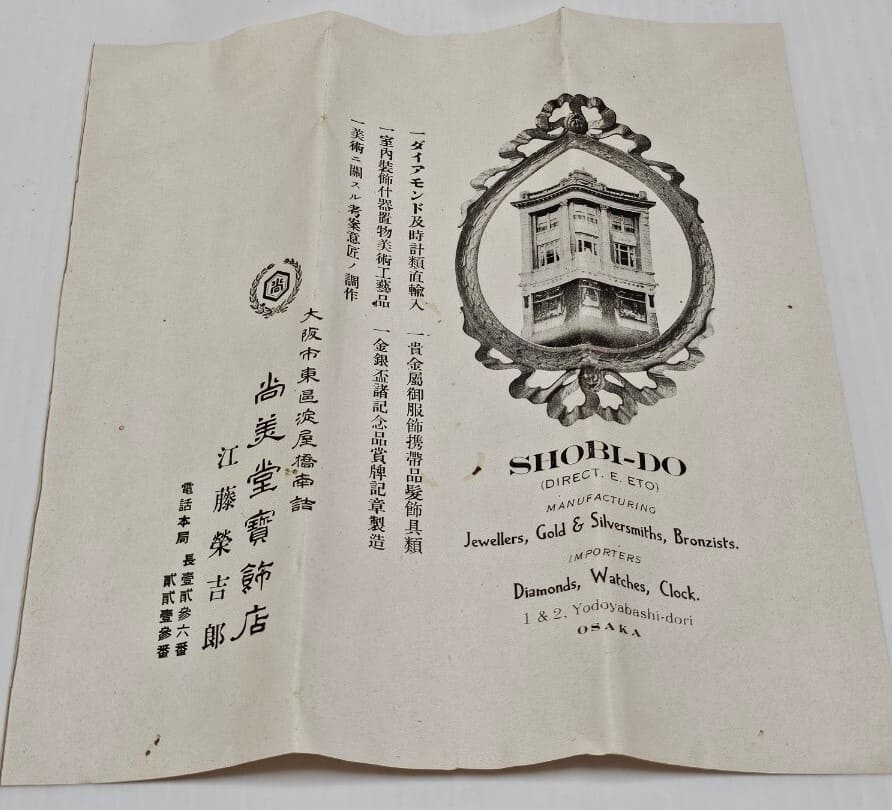 一ダイアモンド及時計類直輸入
一貴金屬御服飾携帶品髮飾具類
一室內裝飾什器置物美術工藝品
一金銀盃諸記念品賞牌記章製造
一美術ニ關スル考案意匠ノ調作
大阪市東區淀屋橋南詰
尚美堂寶飾店
江藤榮吉郎
電話本局 長壹貳參六番
貳貳壹參番
尚
SHOBI-DO
(DIRECT. E. ETO)
MANUFACTURING
Jewellers, Gold & Silversmiths, Bronzists.
IMPORTERS
Diamonds, Watches, Clock.
1 & 2. Yodoyabashi-dori
OSAKA